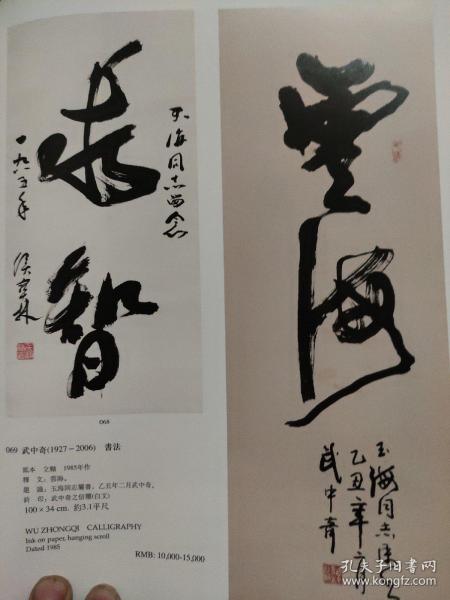 玉海同志留念
求智
一九八五年
侯宝林
068
069 武中奇(1927－2006) 書法
紙本 立軸 1985年作
釋文：雲海。
題識：玉海同志屬書，乙丑年二月武中奇。
鈐印：武中奇之信璽(白文)
100×34 cm. 約3.1平尺
WU ZHONGQI CALLIGRAPHY
Ink on paper, hanging scroll
Dated 1985
RMB: 10,000-15,000
雲海
玉海同志属书
乙丑年二月
武中奇
孔夫子旧书网